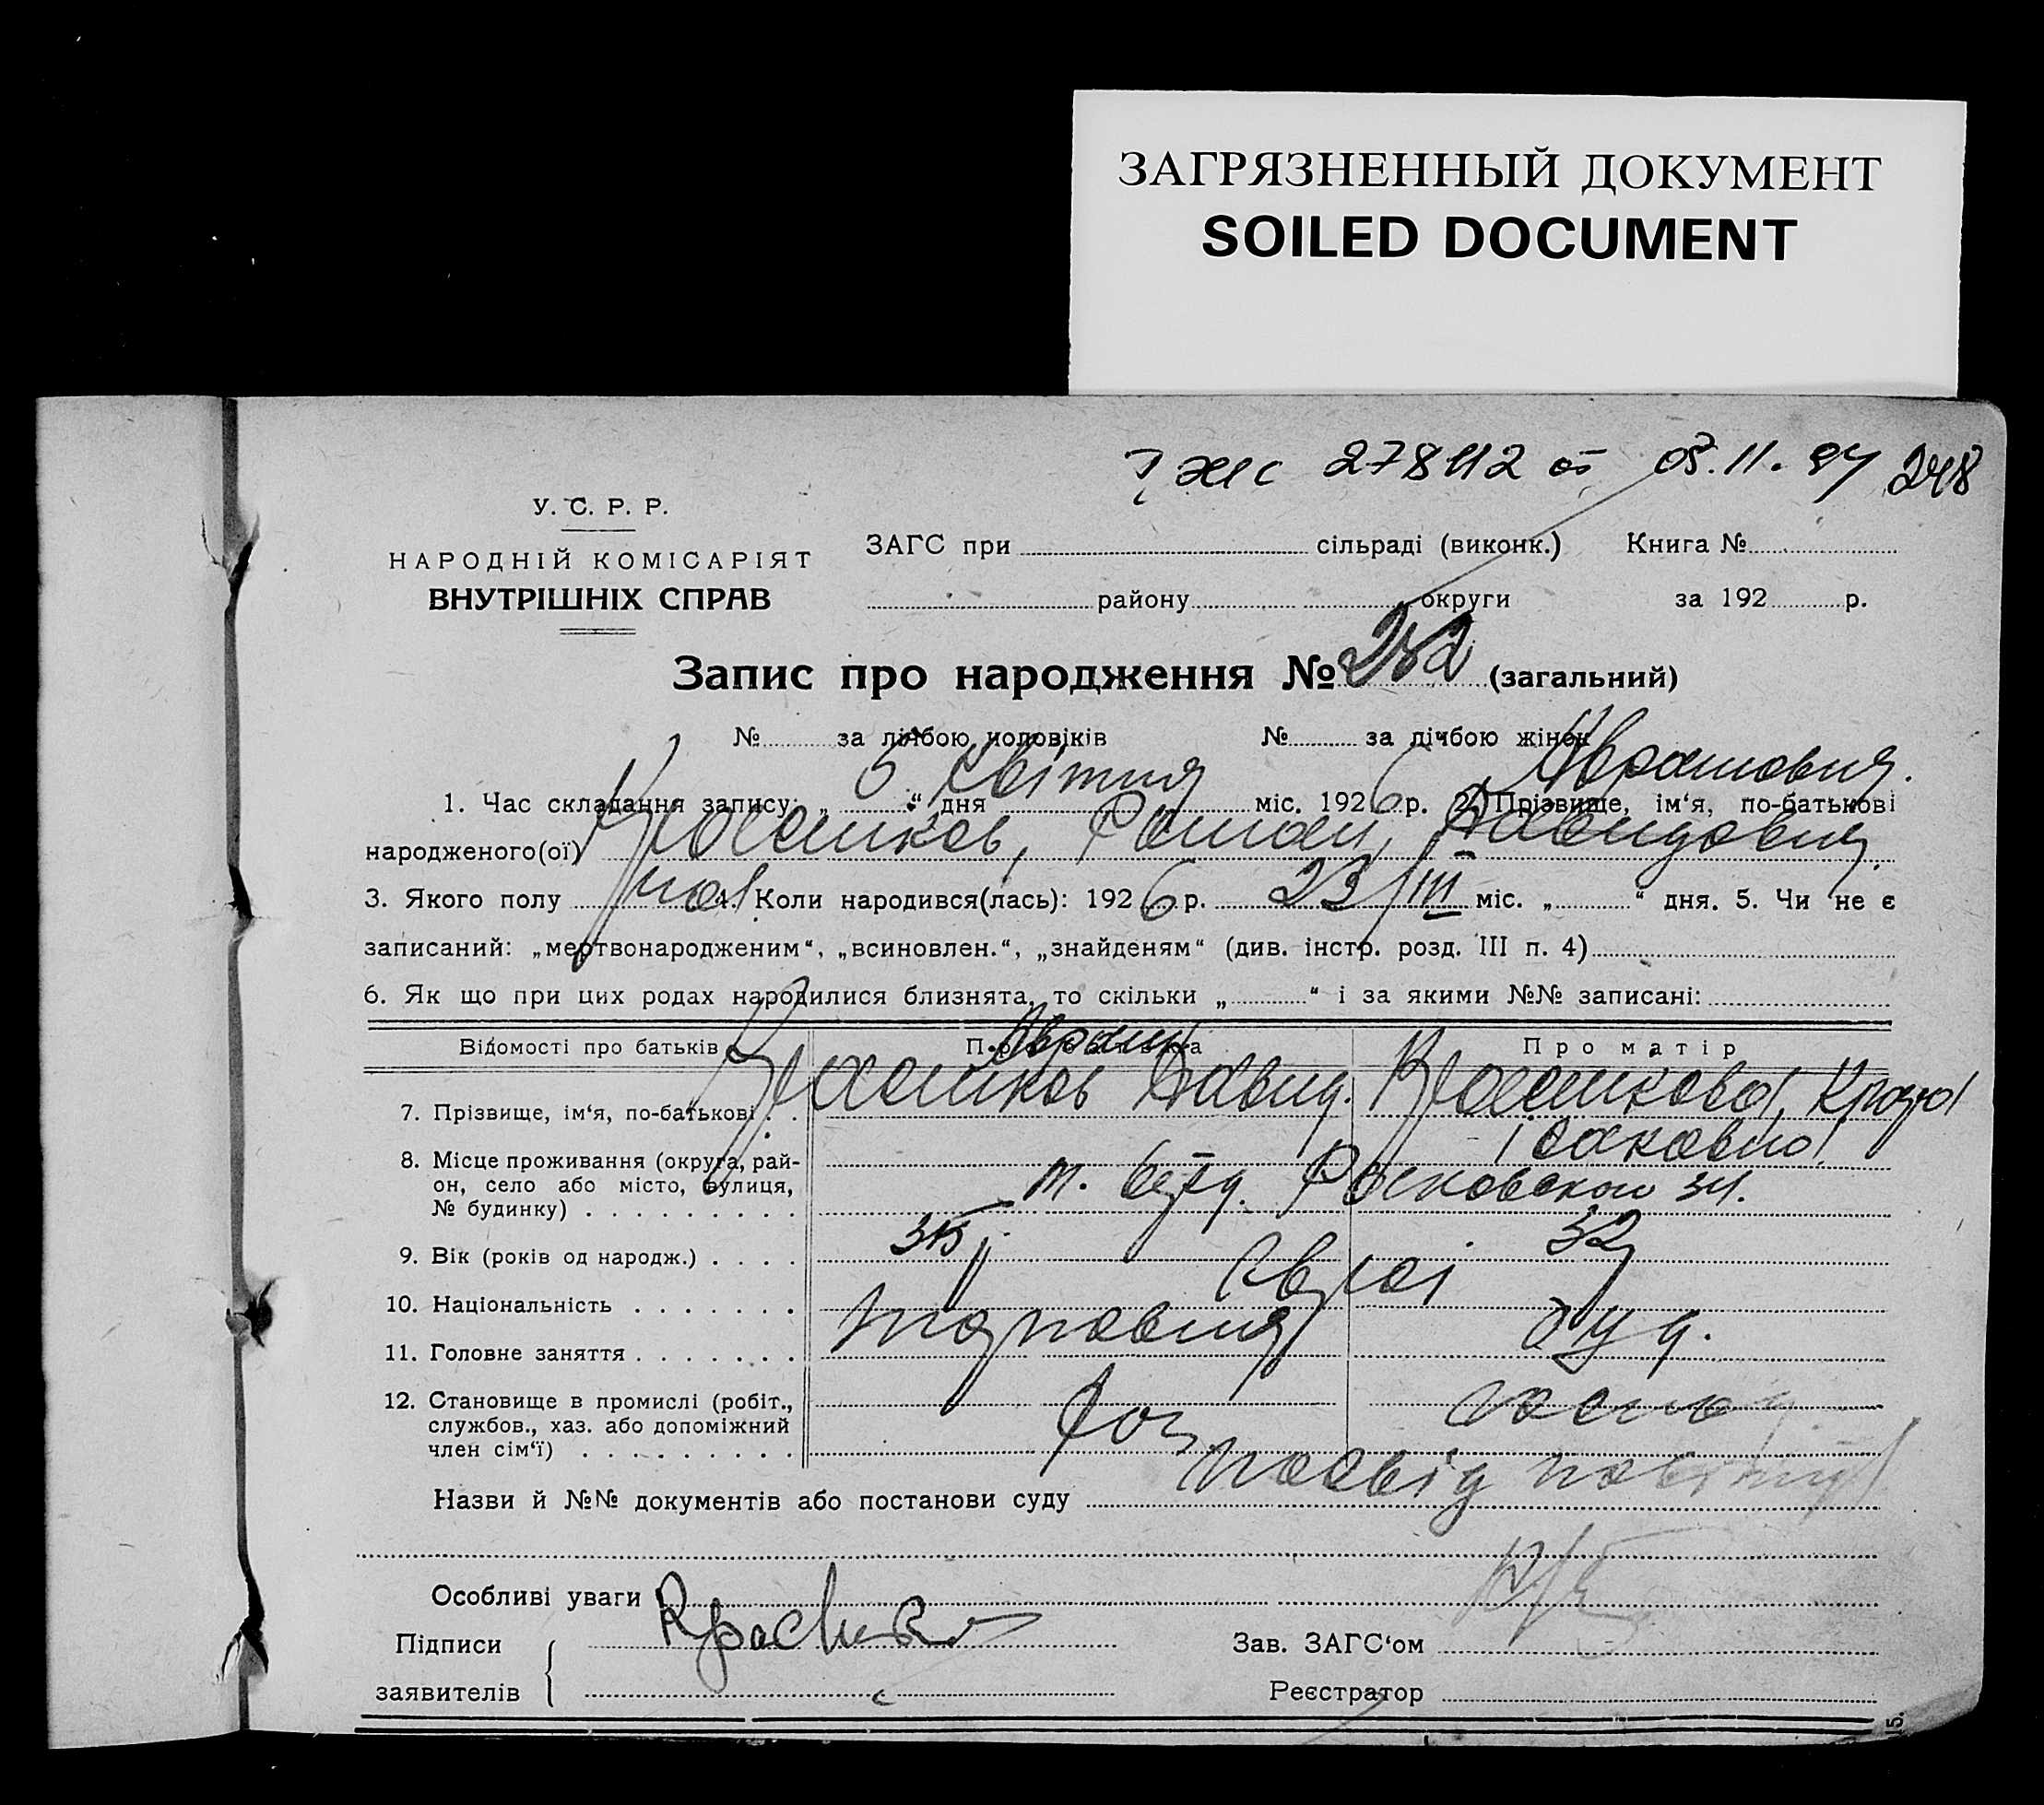 ЗАГРЯЗНЕННЫЙ ДОКУМЕНТ
SOILED DOCUMENT
278112 от 05.11.94 248
У. С. Р. Р.
НАРОДНІЙ КОМІСАРІЯТ
ВНУТРІШНІХ СПРАВ
ЗАГС при сільраді (виконк.) Книга №
району округи за 192 р.
Запис про народження № 252 (загальний)
№ за лічбою чоловіків № за лічбою жінок
Абрамович.
1. Час складання запису: „5“ дня Квітня міс. 1926 р. 2. Прізвище, ім‘я, по-батькові
народженого(ої) Красников, Роман, Давидович
3. Якого полу чол 4. Коли народився(лась): 1926 р. 23/III міс. „ “ дня. 5. Чи не є
записаний: „мертвонародженим“, „всиновлен.“, „знайденям“ (див. інстр. розд. III п. 4)
6. Як що при цих родах народилися близнята, то скільки „ “ і за якими №№ записані:
Відомості про батьків Про батька Про матір
Абрам
7. Прізвище, ім‘я, по-батькові . . Красников Давид. Красникова,
Ісаковна
8. Місце проживання (округа, рай-
он, село або місто, вулиця,
№ будинку) . . . . . . . . . м. 31.
9. Вік (років од народж.) . . . . 35 32
10. Національність . . . . . . . Євреї
11. Головне заняття . . . . . . .
12. Становище в промислі (робіт.,
службов., хаз. або допоміжний
член сім‘ї) . . . . . . . . .
Назви й №№ документів або постанови суду посвід
Особливі уваги
Підписи Зав. ЗАГС‘ом
заявителів Реєстратор
15.